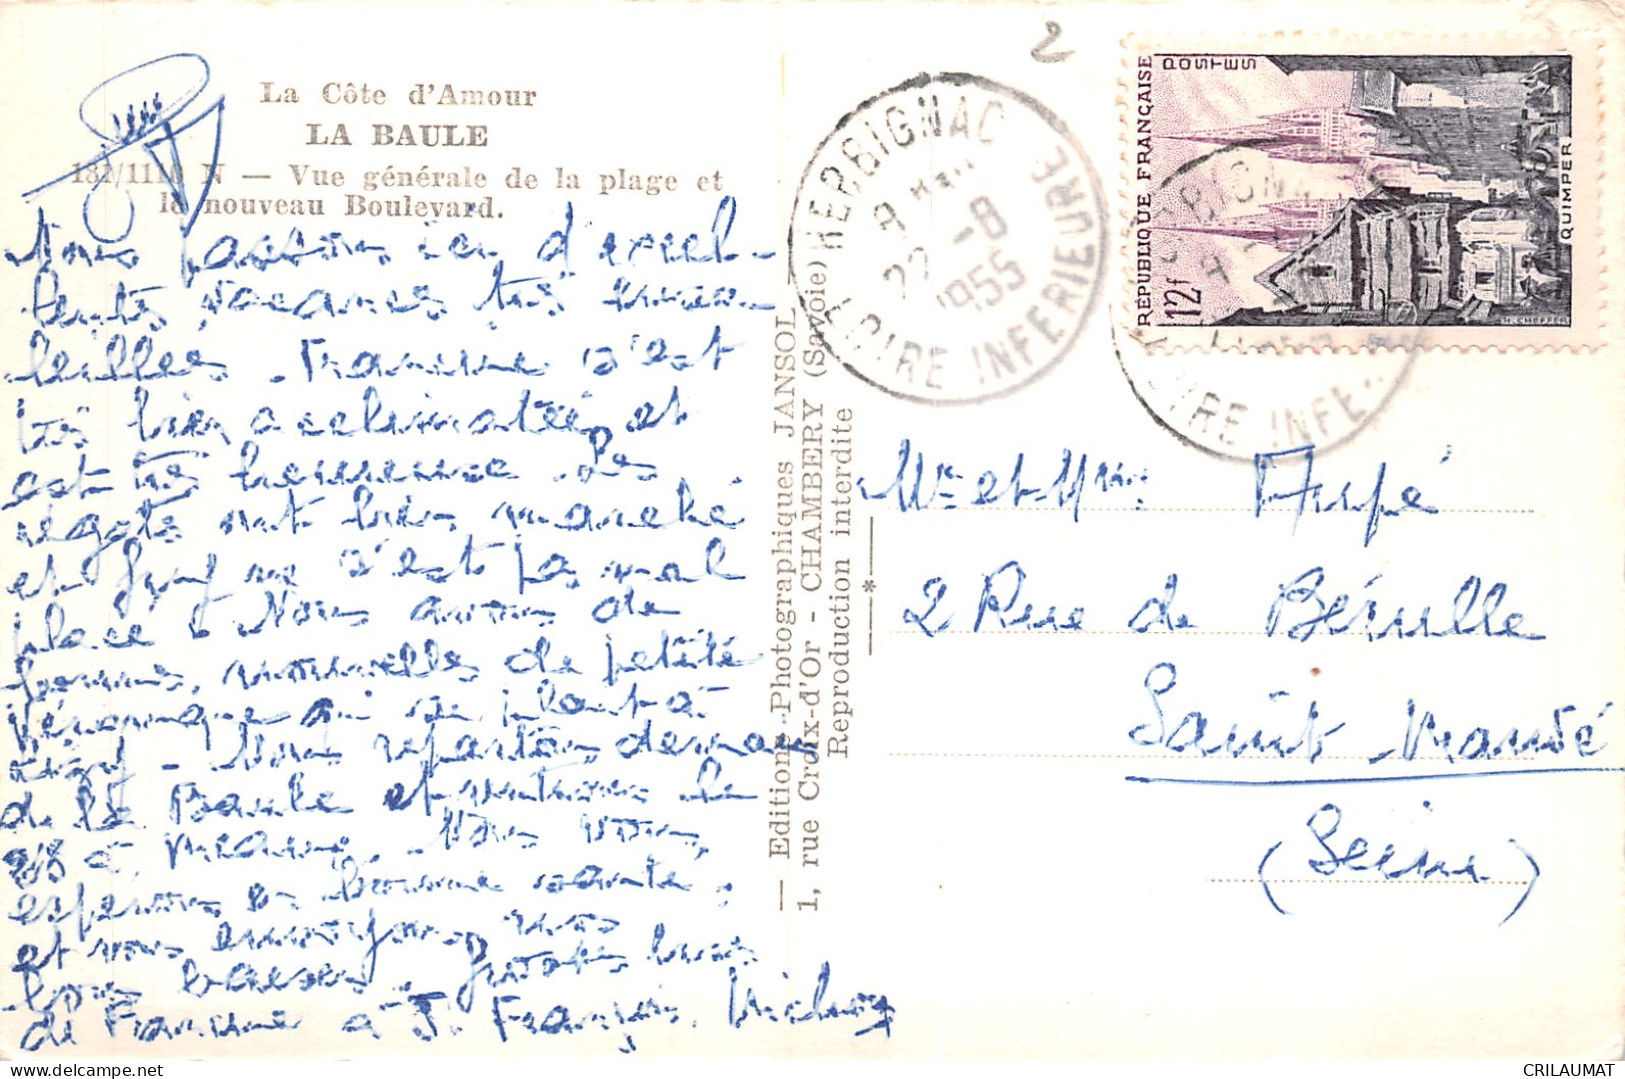 La Côte d'Amour
LA BAULE
181/1110 N — Vue générale de la plage et
le nouveau Boulevard.
Nous passons ici d'excel-
lentes vacances très ensoleil-
leillées. Francine s'est
très bien acclimatée et
est très heureuse. Les
régates ont bien marché
et Guy ne s'est pas mal
placé. Nous avons de
bonnes nouvelles de petite
Véronique qui se plaît à
. Nous repartons demain
de La Baule et rentrons le
à . Nous vous
espérons en bonne santé,
et vous envoyons nos
bons baisers
de Francine à J. François. Michèle
— Editions Photographiques JANSOL
1, rue Croix-d'Or - CHAMBERY (Savoie)
Reproduction interdite
*
2
HERBIGNAC
9
22-8
1955
LOIRE INFERIEURE
RÉPUBLIQUE FRANÇAISE
POSTES
12f
QUIMPER
H. CHEFFER
IRE INFE
Mr et Mme
2 Rue de Bérulle
Saint Mandé
(Seine)
CRILAUMAT